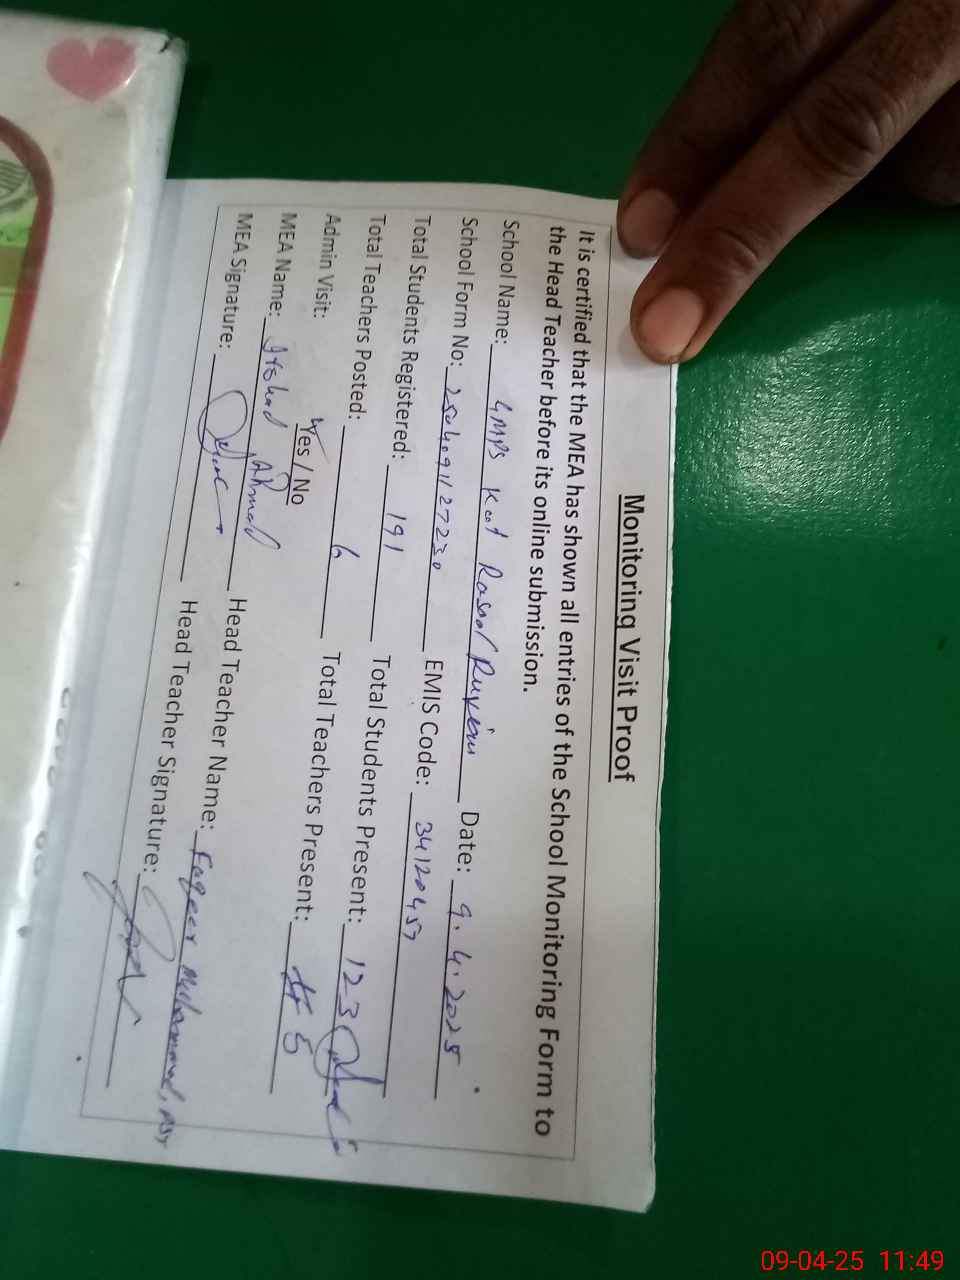 Monitoring Visit Proof
It is certified that the MEA has shown all entries of the School Monitoring Form to
the Head Teacher before its online submission.
School Name: GMPS Kot Rasool Date: 9.4.2025
School Form No: 250409127230 EMIS Code: 34120457
Total Students Registered: 191 Total Students Present: 123
Total Teachers Posted: 6 Total Teachers Present: 5
Admin Visit: Yes / No
MEA Name: Irshad Ahmad Head Teacher Name: Faqeer Muhammad, PST
MEA Signature: Head Teacher Signature:
09-04-25 11:49